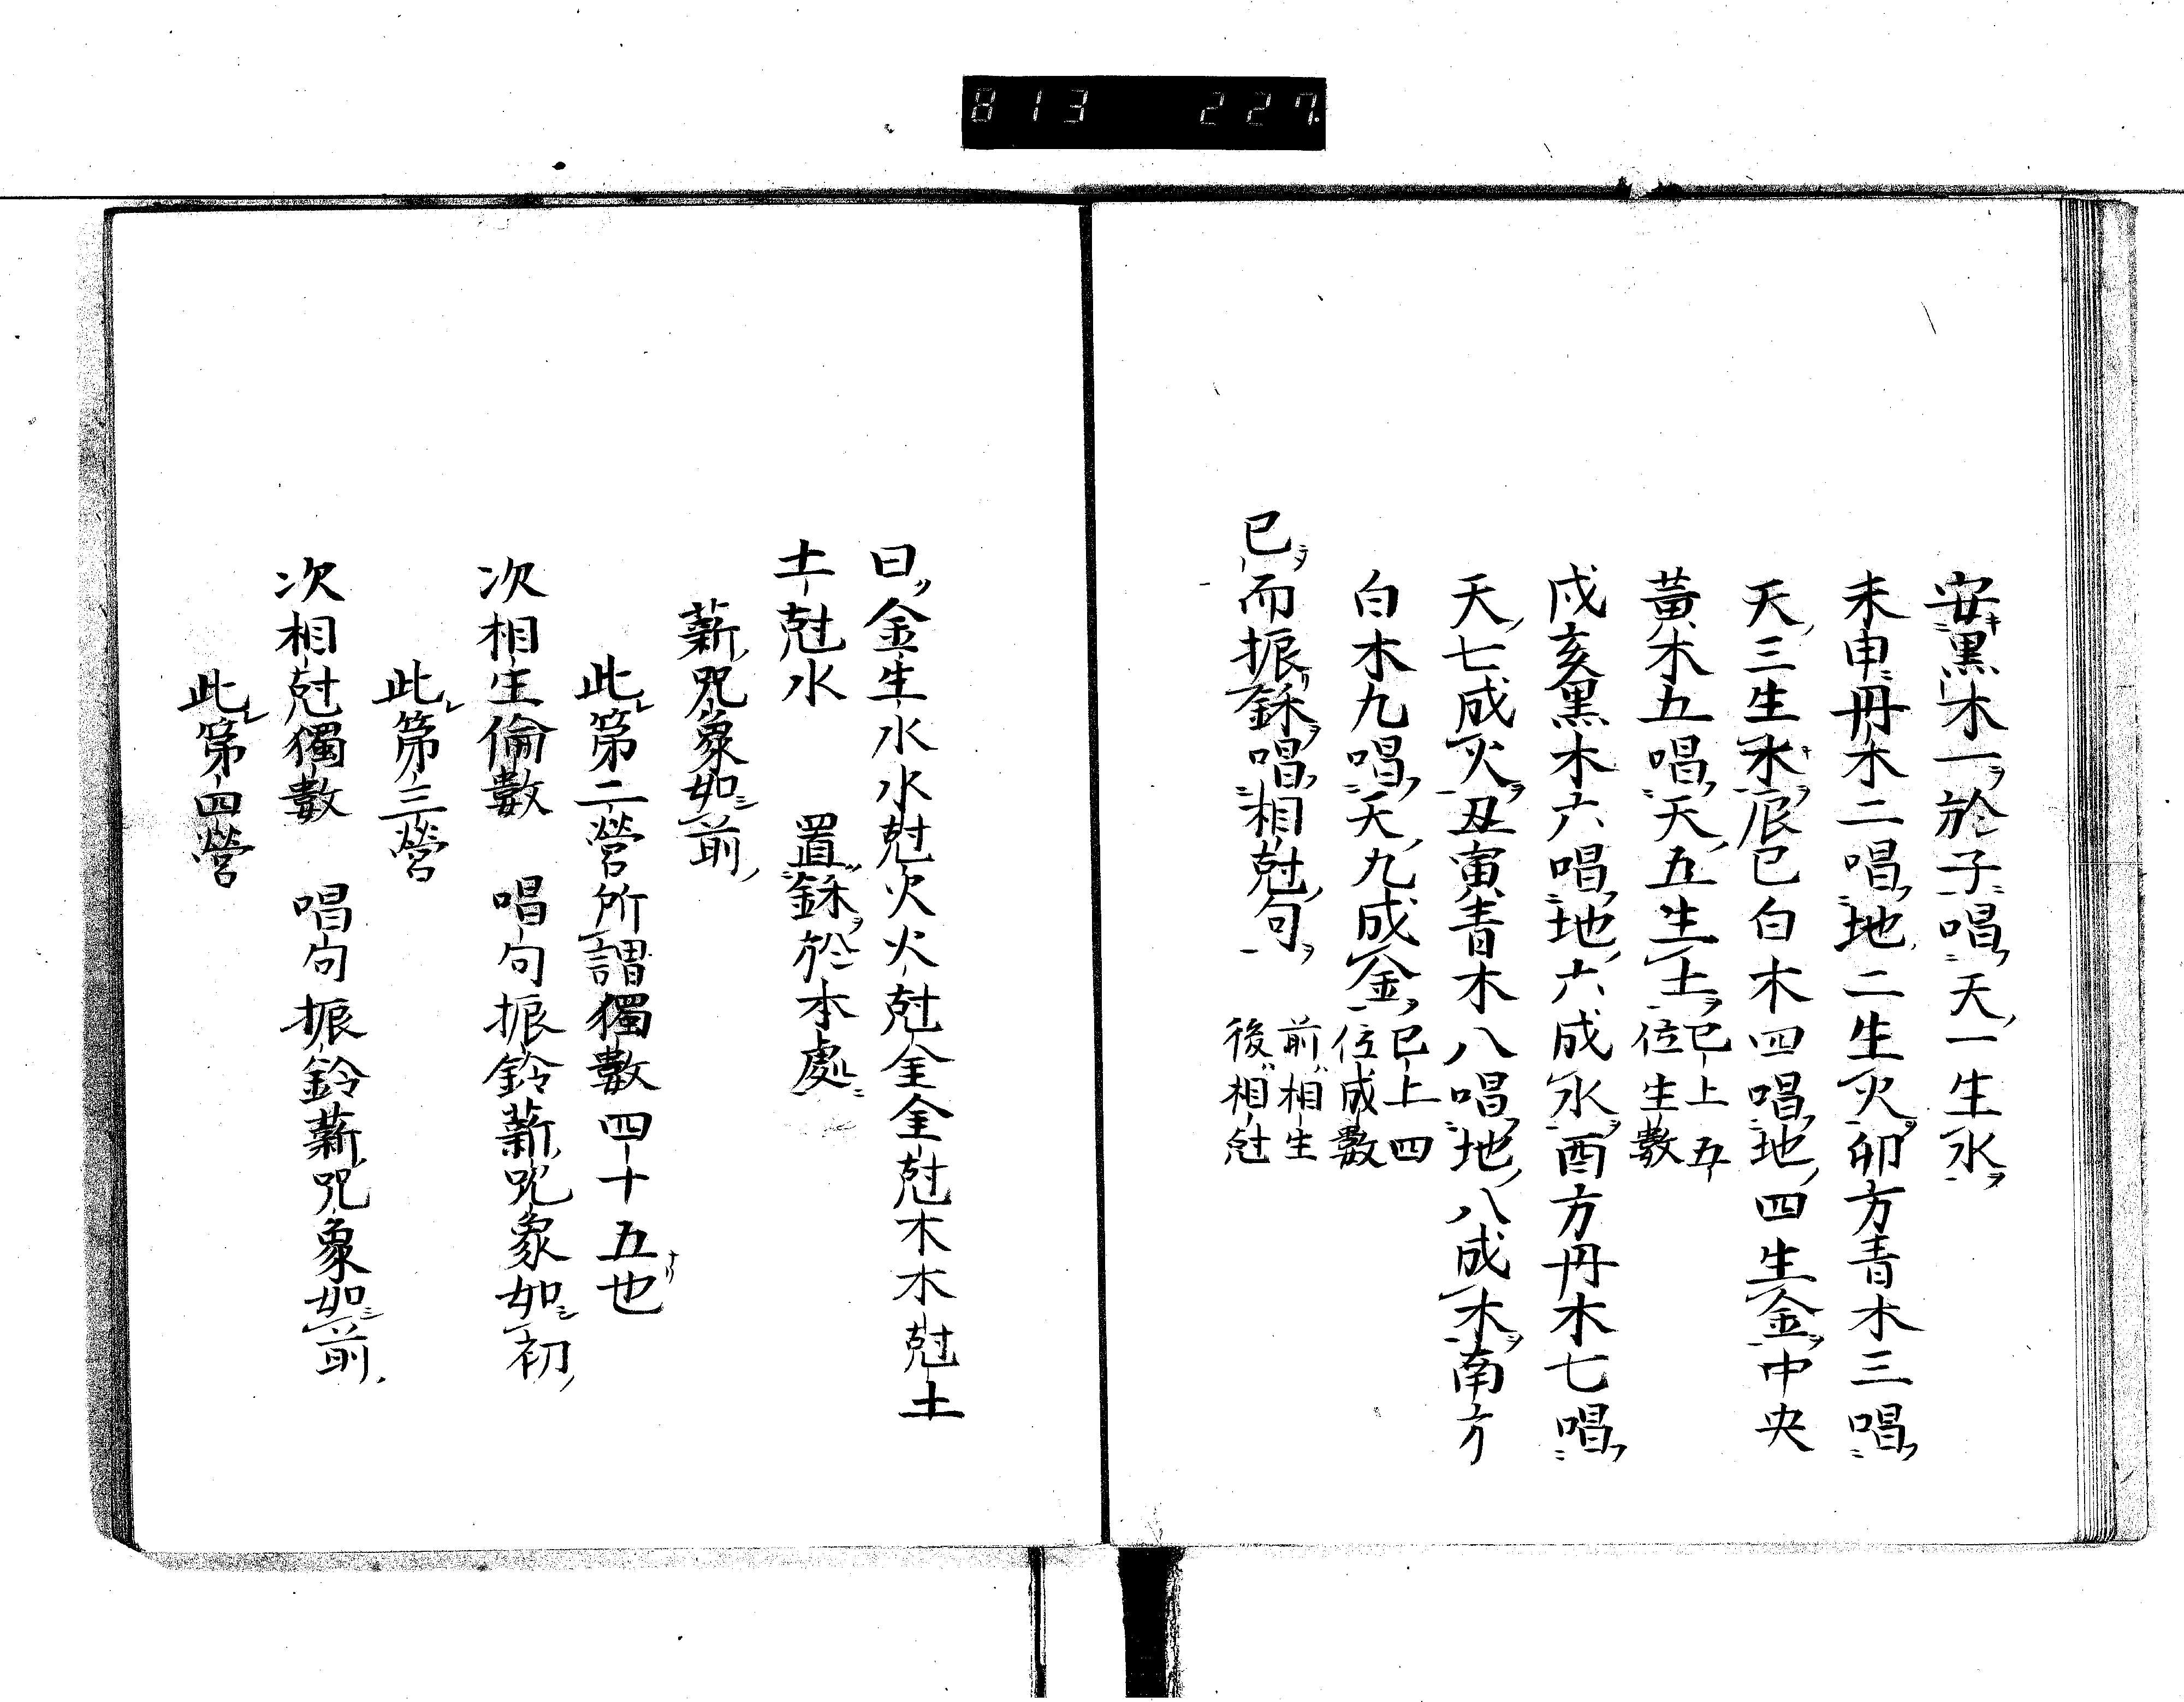 813 227.
安黒木一ヲ於子唱天一生水ヲ
未申丹木二唱地二生火ヲ卯方青木三唱
天三生木ヲ辰巳白木四唱地四生金ヲ中央
黄木五唱天五生土ヲ
已上五
位生數
戌亥黒木六唱地六成水ヲ酉方丹木七唱
天七成火ヲ丑寅青木八唱地八成木ヲ南方
白木九唱天九成金ヲ
已上四
位成數
前ハ相生
後ハ相尅
已而振鉌ヲ唱相尅句ヲ
曰金生水水尅火火尅金金尅木木尅土
土尅水 置鉌ヲ於本處ニ
薪咒象如前
此第二營所謂獨數四十五也
次相生倫數 唱句振鈴薪咒象如初
此第三營
次相尅獨數 唱句振鈴薪咒象如前
此第四營